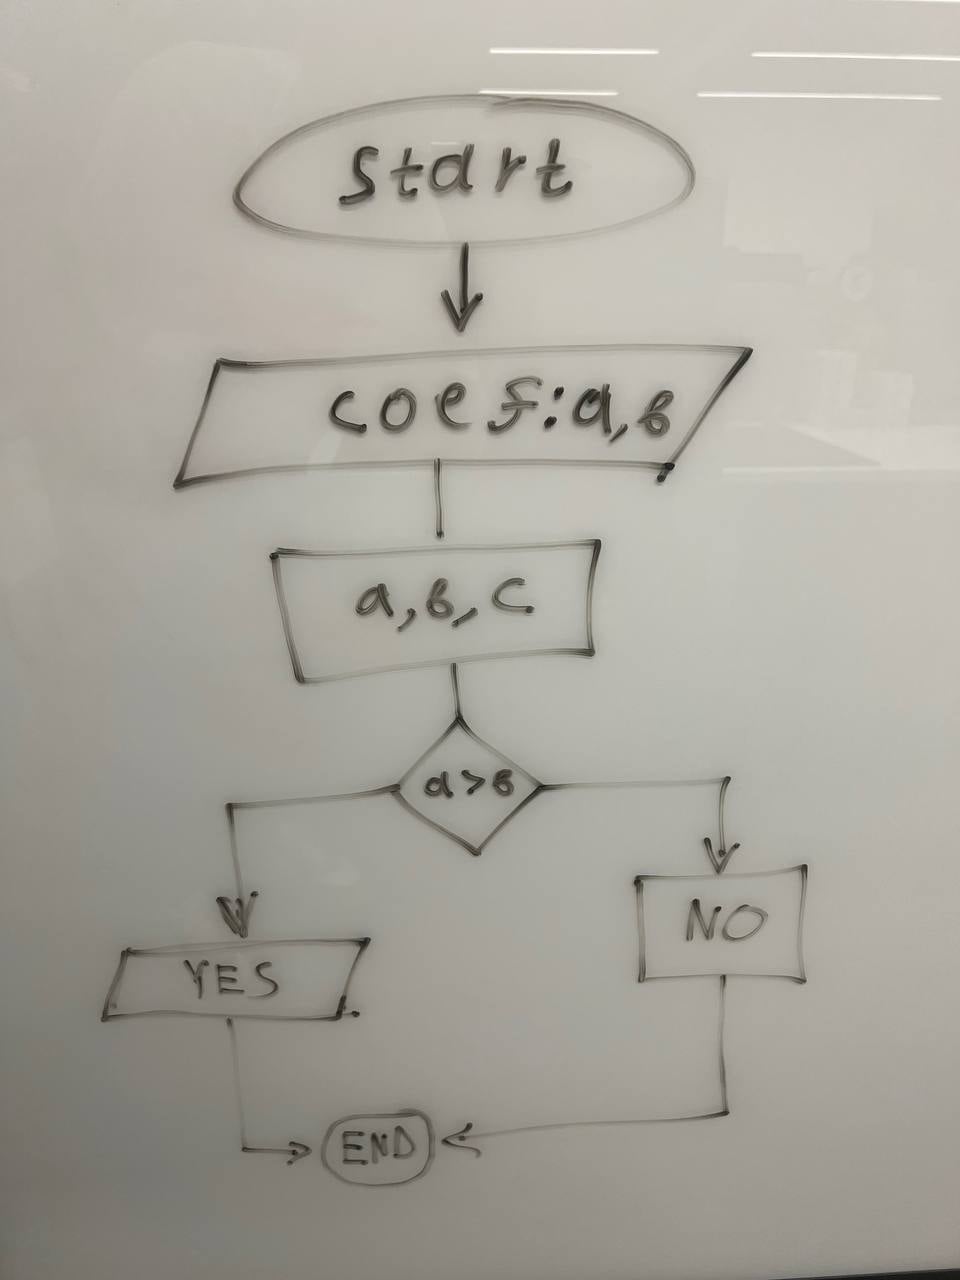 Start
coef: a, b
a, b, c
a > b
YES
NO
END